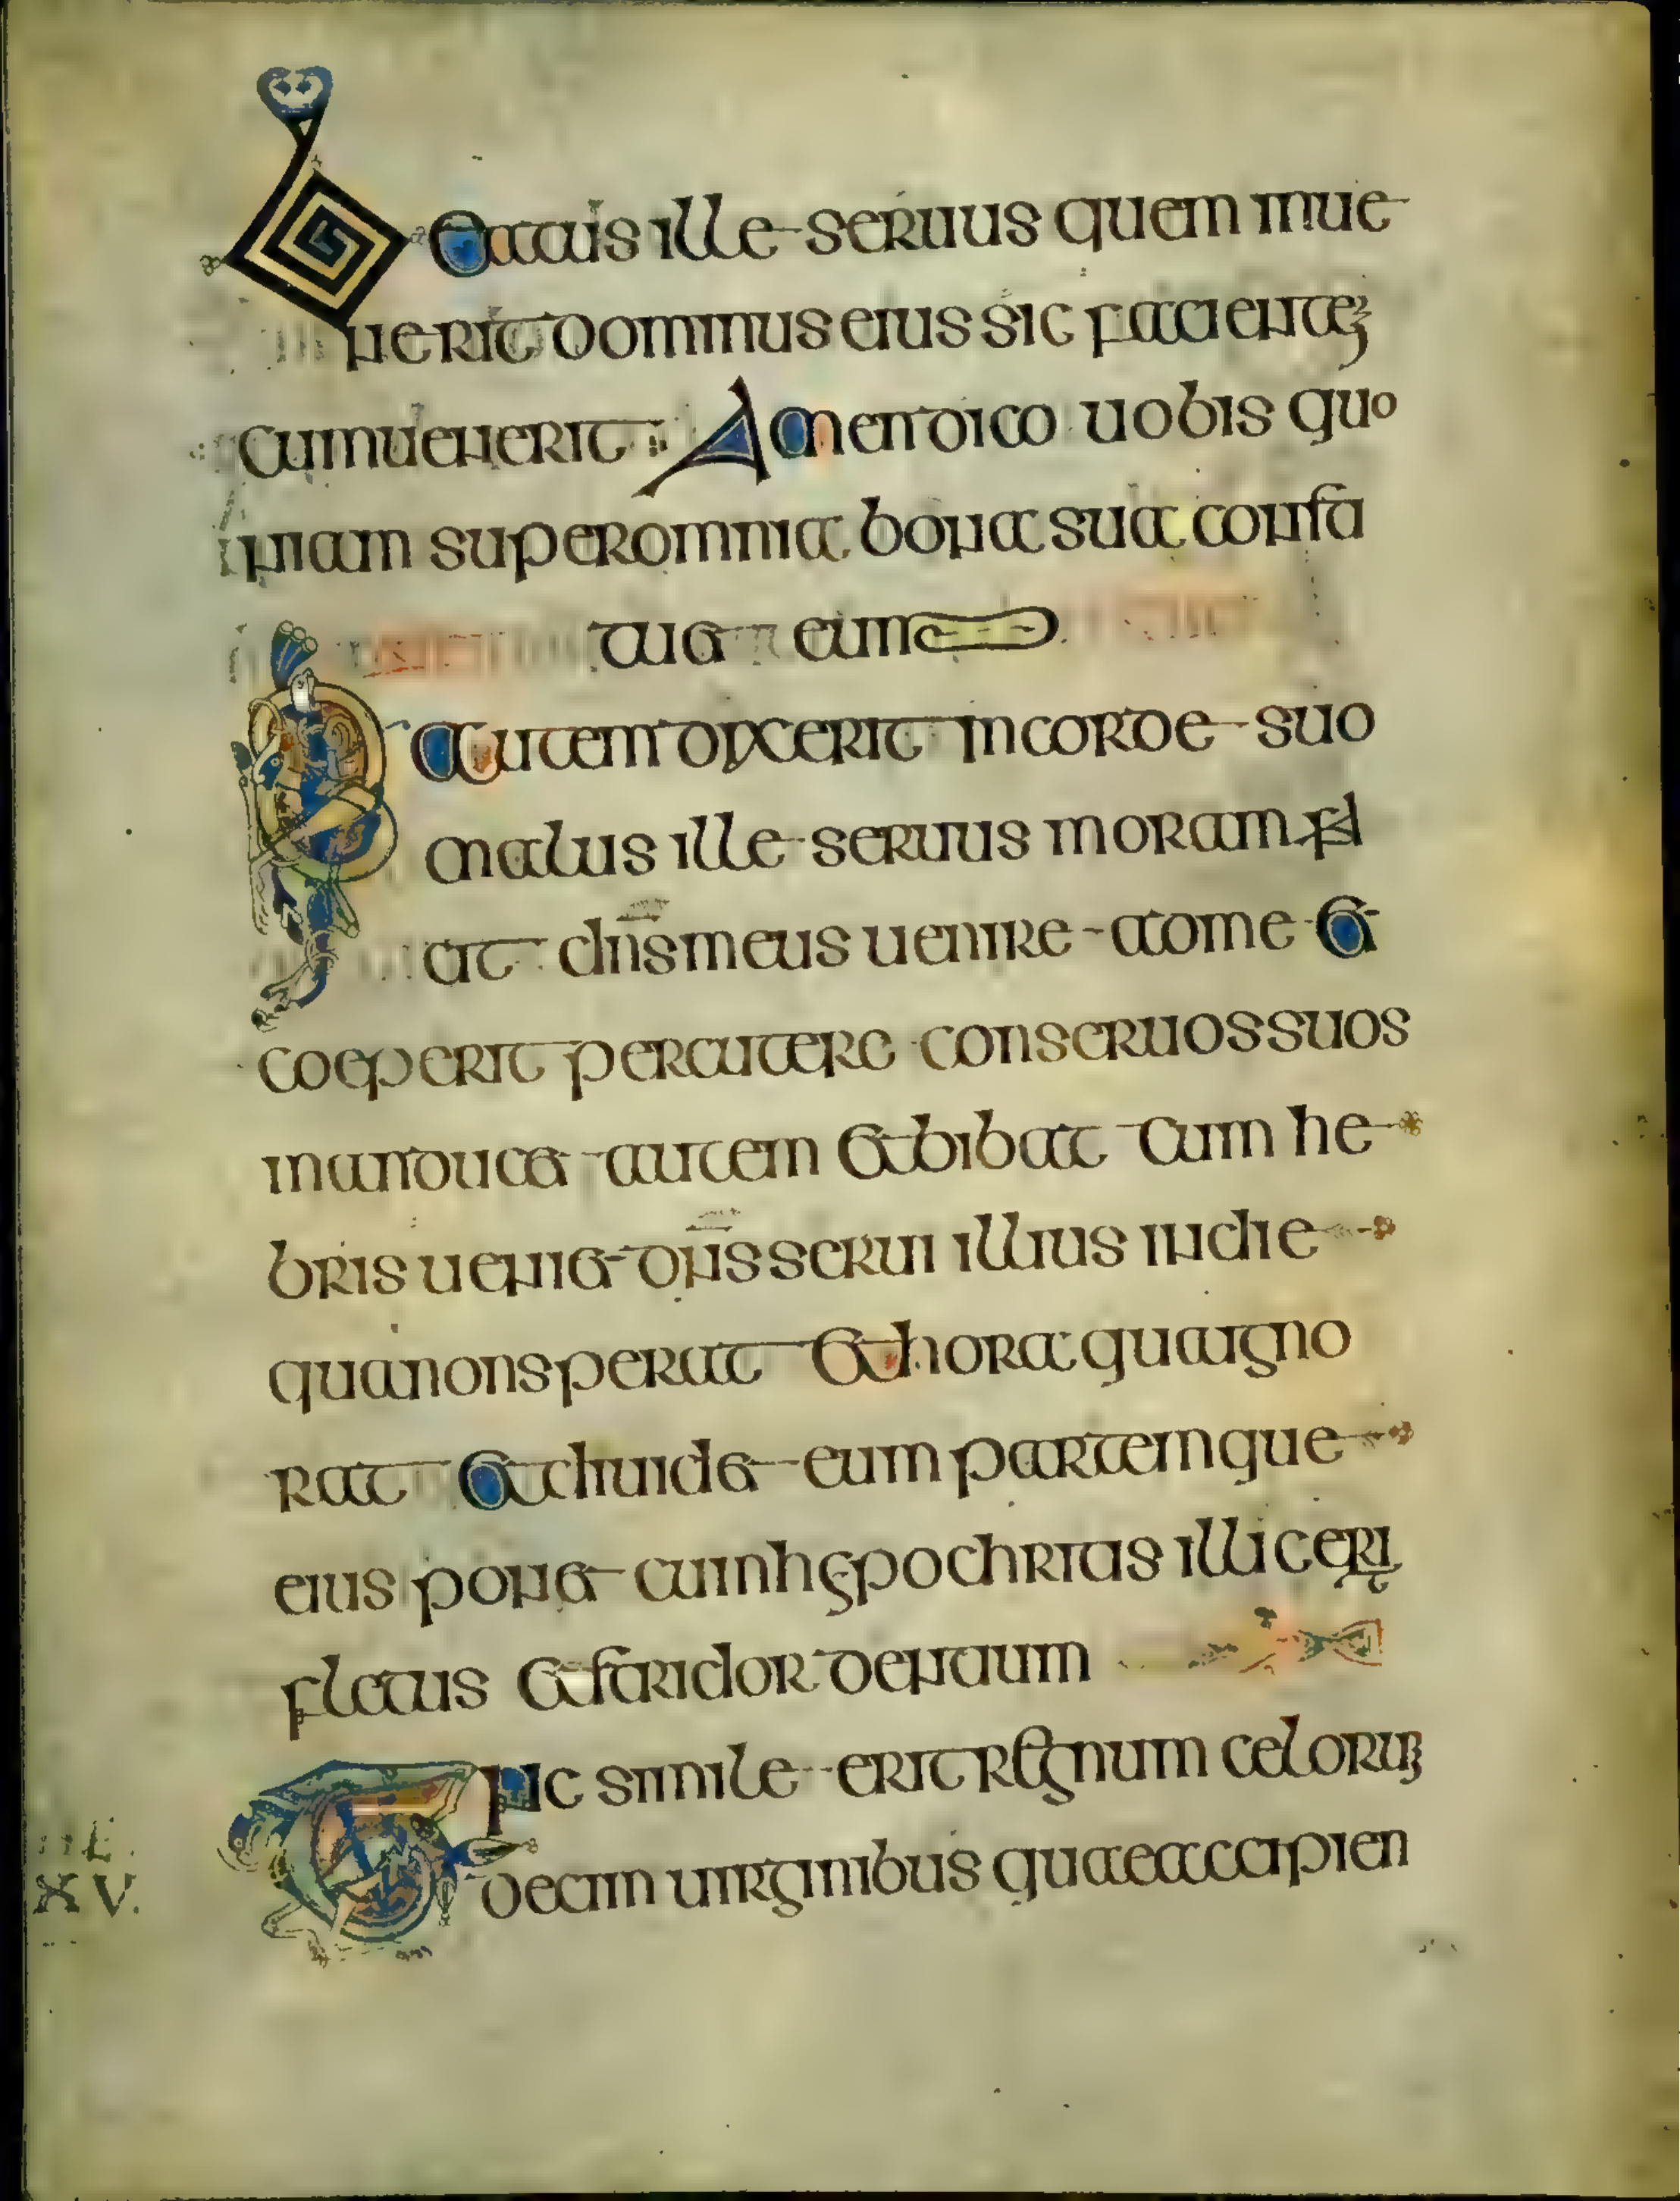 Beatus ille seruus quem inue
nerit dominus eius sic facientem
cum uenerit Amen dico uobis quo
niam super omnia bona sua consti
tuet eum
Si autem dixerit in corde suo
malus ille seruus moram fa
cit dn̄s meus uenire ad me et
coeperit percutere conseruos suos
manducet autem et bibat cum he
bris ueniet dn̄s serui illius in die
qua non sperat et hora qua igno
rat et diuidet eum partemque
eius ponet cum hypochritis illic erit
fletus et stridor dentium
Tunc simile erit regnum celorum
decim uirginibus quae accipien
XV.